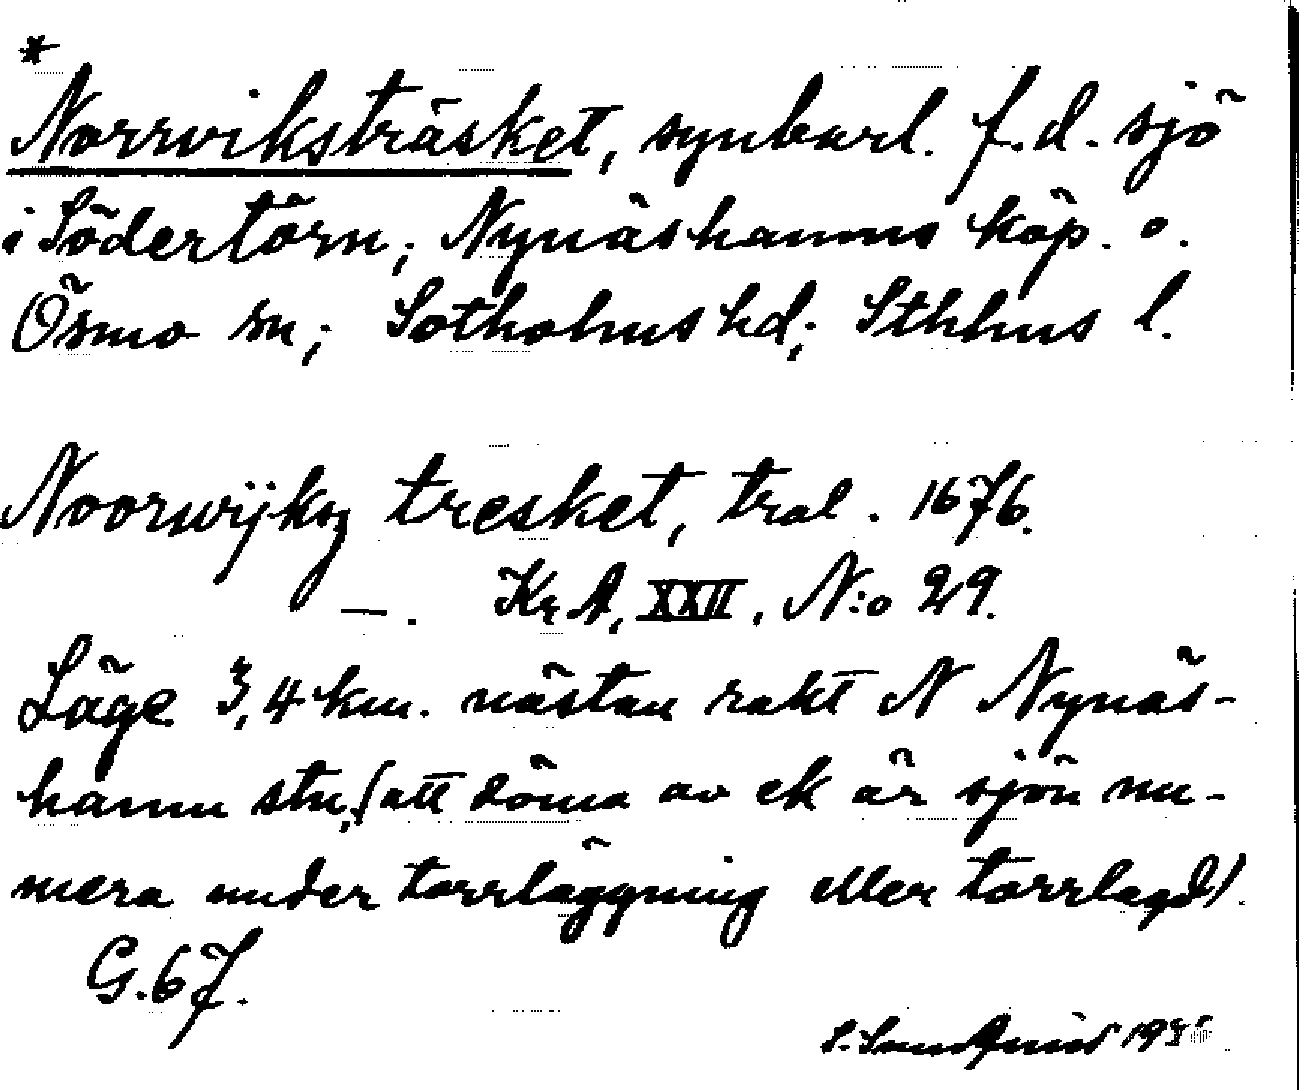 *
Norrviksträsket, synbarl. f.d. sjö
i Södertörn; Nynäshamns köp. o.
Ösmo sn; Sotholms hd; Sthlms l.
Noorwijkz tresket, tral. 1676.
—. KrA, XXII, N:o 29.
Läge 3,4 km. nästan rakt N Nynäs-
hamn stn, (att döma av ek är sjön nu-
mera under torrläggning eller torrlagd).
G. 67.